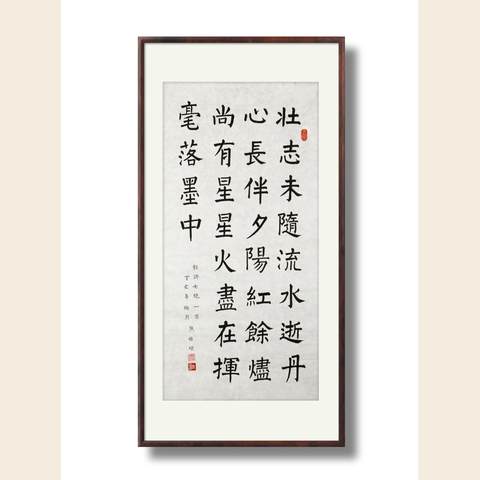 壯志未隨流水逝丹
心長伴夕陽紅餘燼
尚有星星火盡在揮
毫落墨中